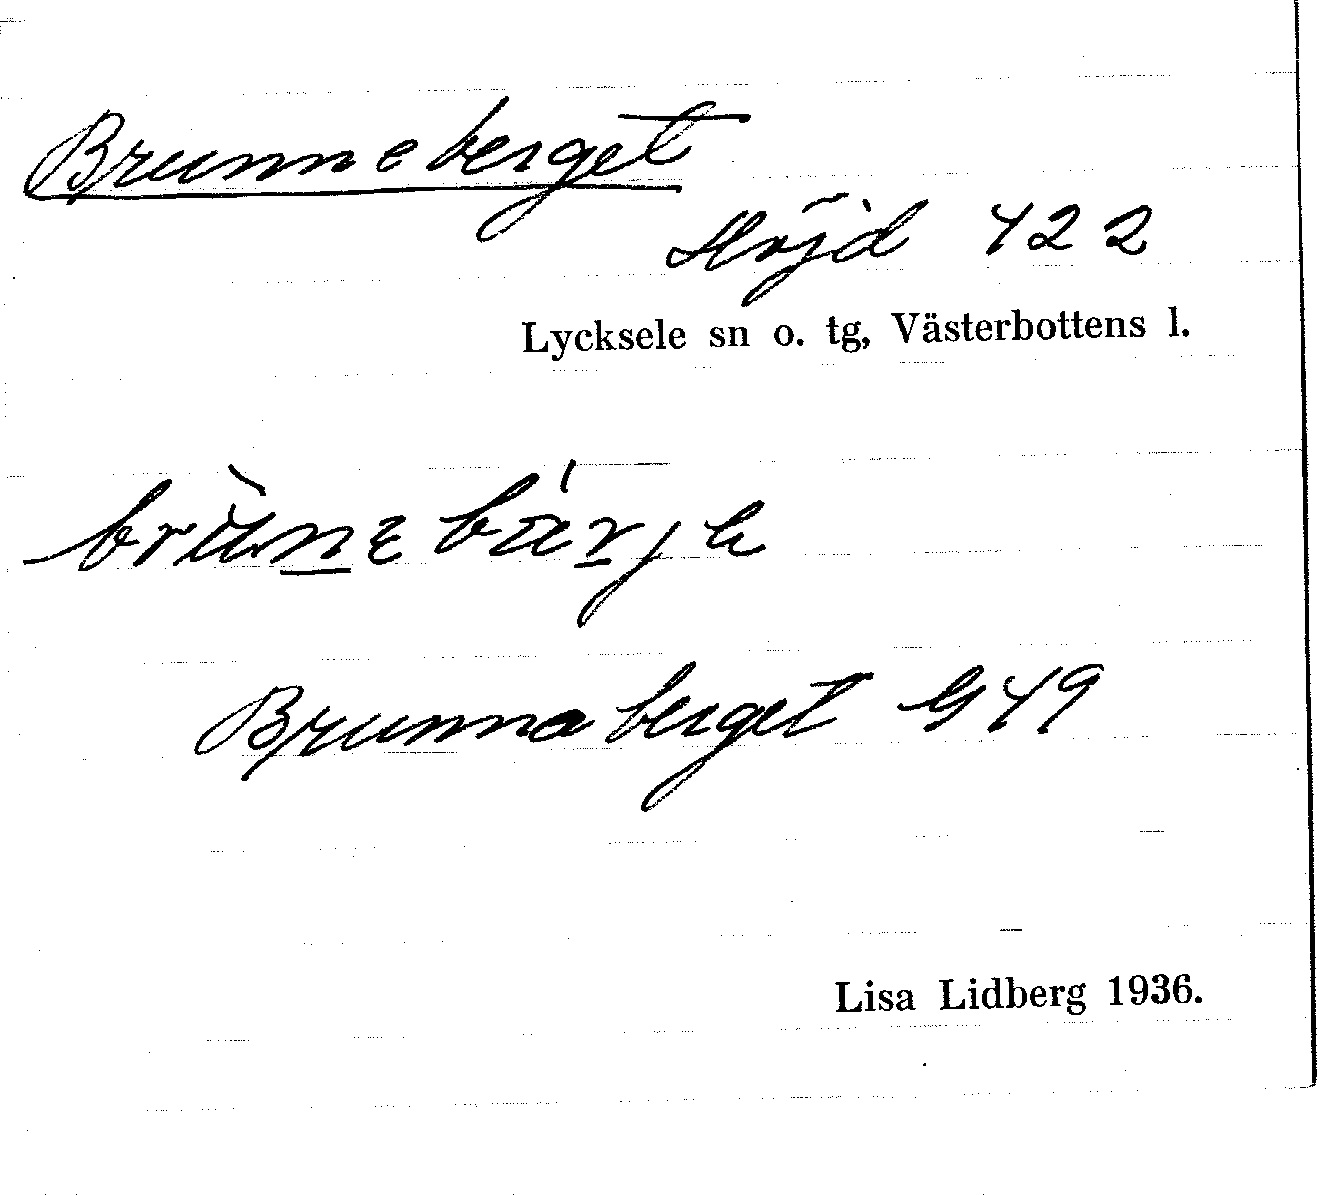 Brunneberget
Höjd 422
Lycksele sn o. tg, Västerbottens l.
brùnebárje
Brunnaberget G 49
Lisa Lidberg 1936.